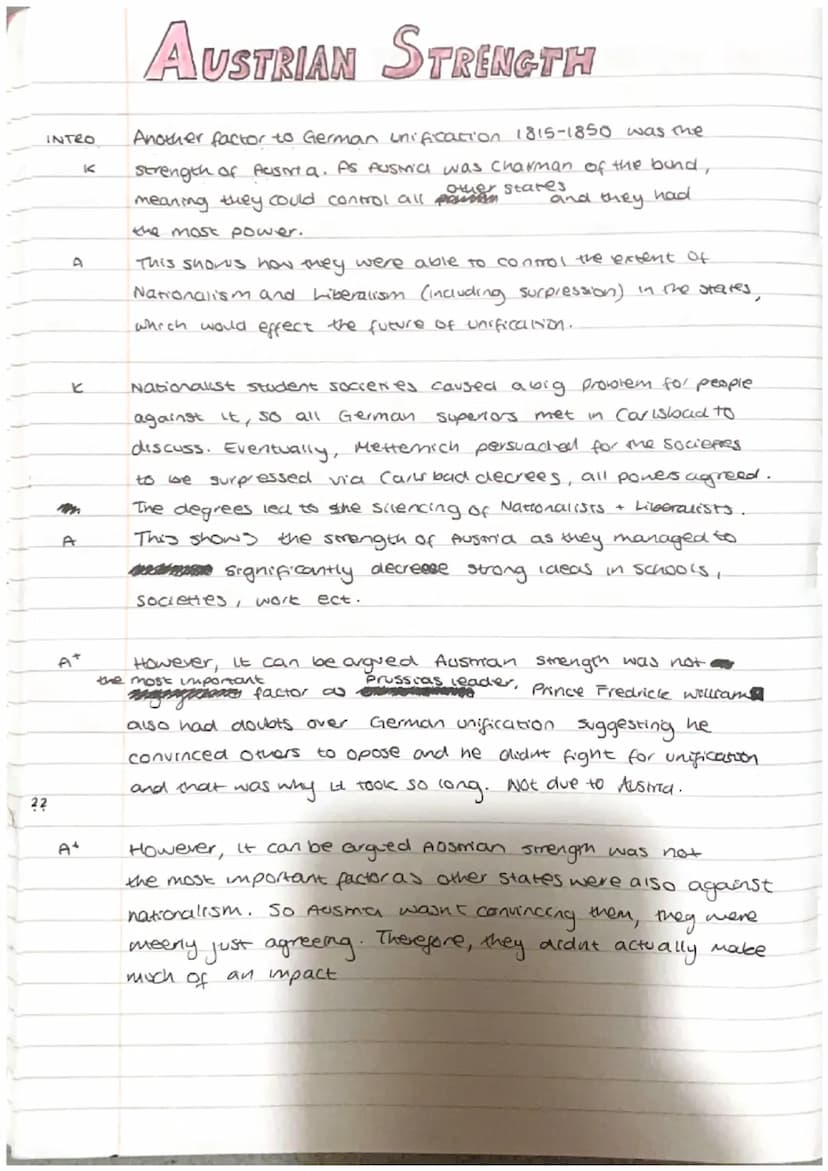 AUSTRIAN STRENGTH
INTRO Another factor to German unification 1815-1850 was the
K strength of Austria. As Austria was Charman of the bund,
meaning they could control all other states and they had
the most power.
A This shows how they were able to control the extent of
Nationalism and Liberalism (including surpression) in the states,
which would effect the future of unification.
K Nationalist student societies caused a big problem for people
against it, so all German superiors met in Carlsbad to
discuss. Eventually, Metternich persuaded for the societies
to be surpressed via Carlsbad decrees, all powers agreed.
The degrees led to the silencing of Nationalists + Liberalists.
A This shows the strength of Austria as they managed to
significantly decrease strong ideas in schools,
societies, work ect.
A+ However, it can be argued Austrian strength was not
the most important factor as Prussias leader, Prince Fredrick William
also had doubts over German unification suggesting he
convinced others to opose and he didnt fight for unification
and that was why it took so long. Not due to Austria.
??
A+ However, it can be argued Austrian strength was not
the most important factor as other states were also against
nationalism. So Austria wasnt convincing them, they were
meerly just agreeing. Therefore, they didnt actually make
much of an impact